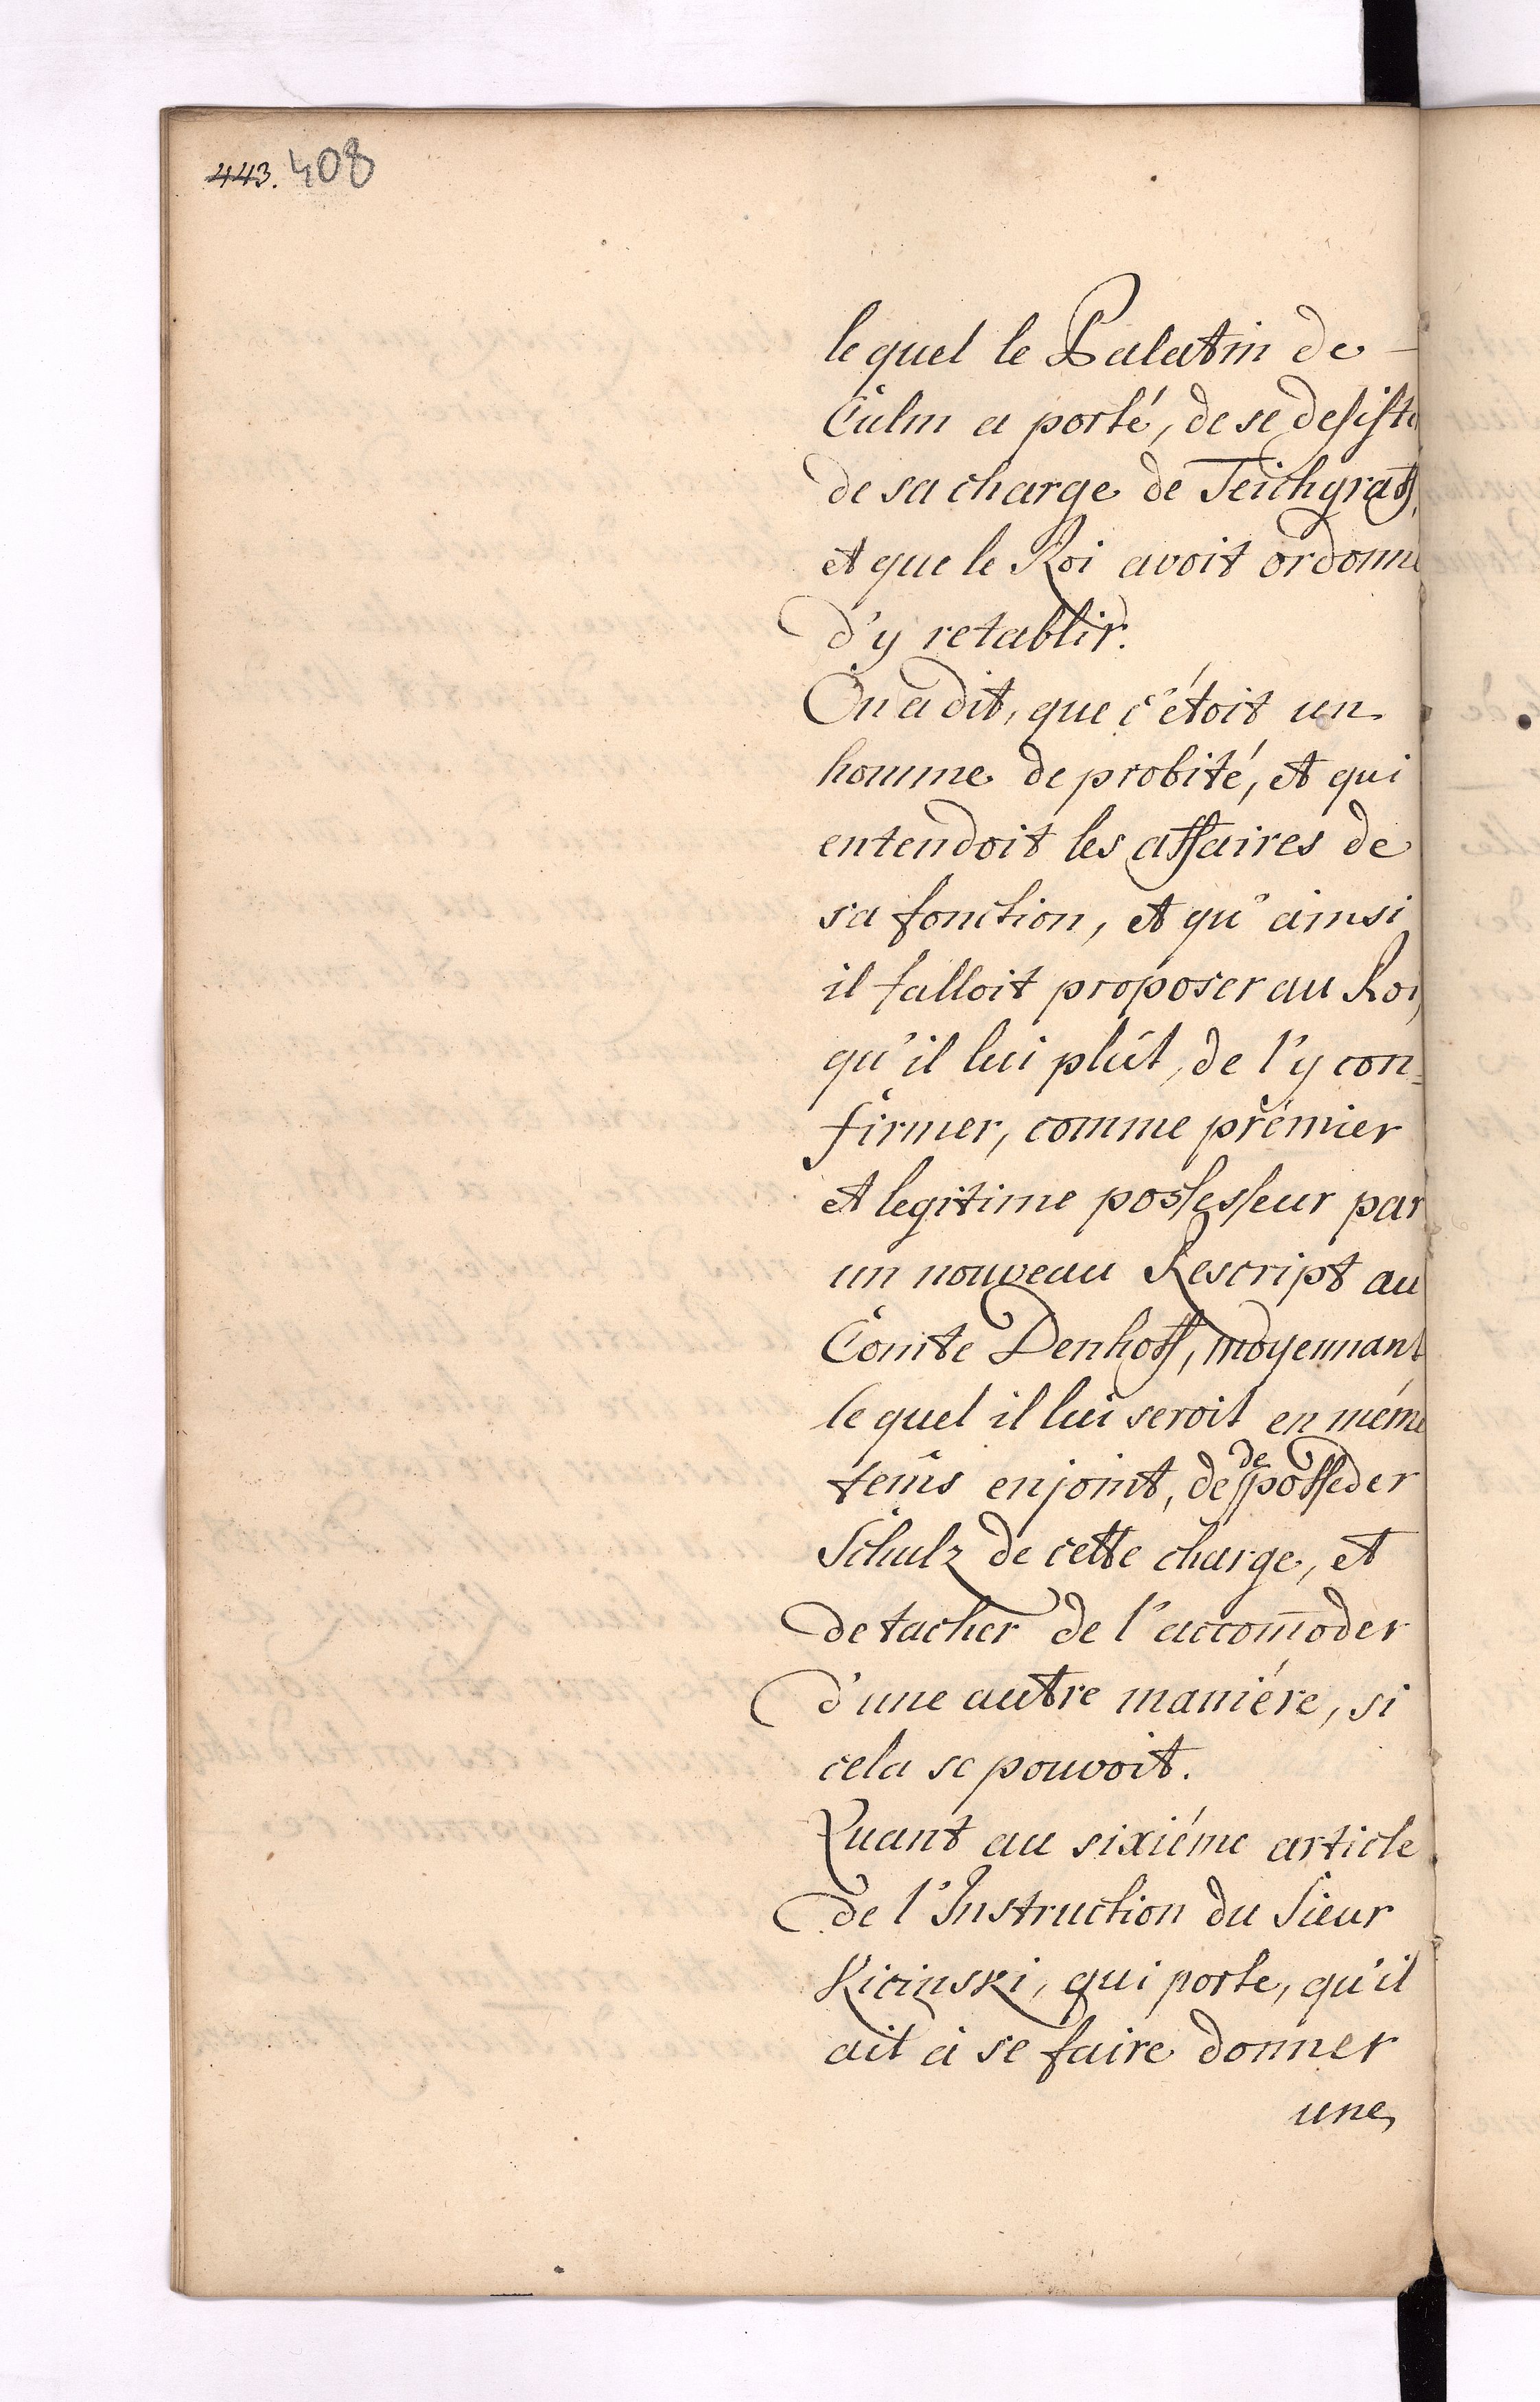 443. 408
le quel le Palatin de –
Culm a porté, de se desiste
de sa charge de Teichgraff,
et que le Roi avoit ordonné
d'y retablir.
On a dit, que c'étoit un
homme de probité, et qui
entendoit les affaires de
sa fonction, et qu'ainsi
il falloit proposer au Roi,
qu'il lui plût, de l'y con=
firmer, comme prémier
et legitime possesseur par
un nouveau Rescript au
Comte Denhoff, moyennant
le quel il lui seroit en même
tems enjoint, de deposseder
Schulz de cette charge, et
de tacher de l'accom̄oder
d'une autre maniére, si
cela se pouvoit.
Quant au sixiéme article
de l'Instruction du Sieur
Kicinski, qui porte, qu'il
ait à se faire donner
une